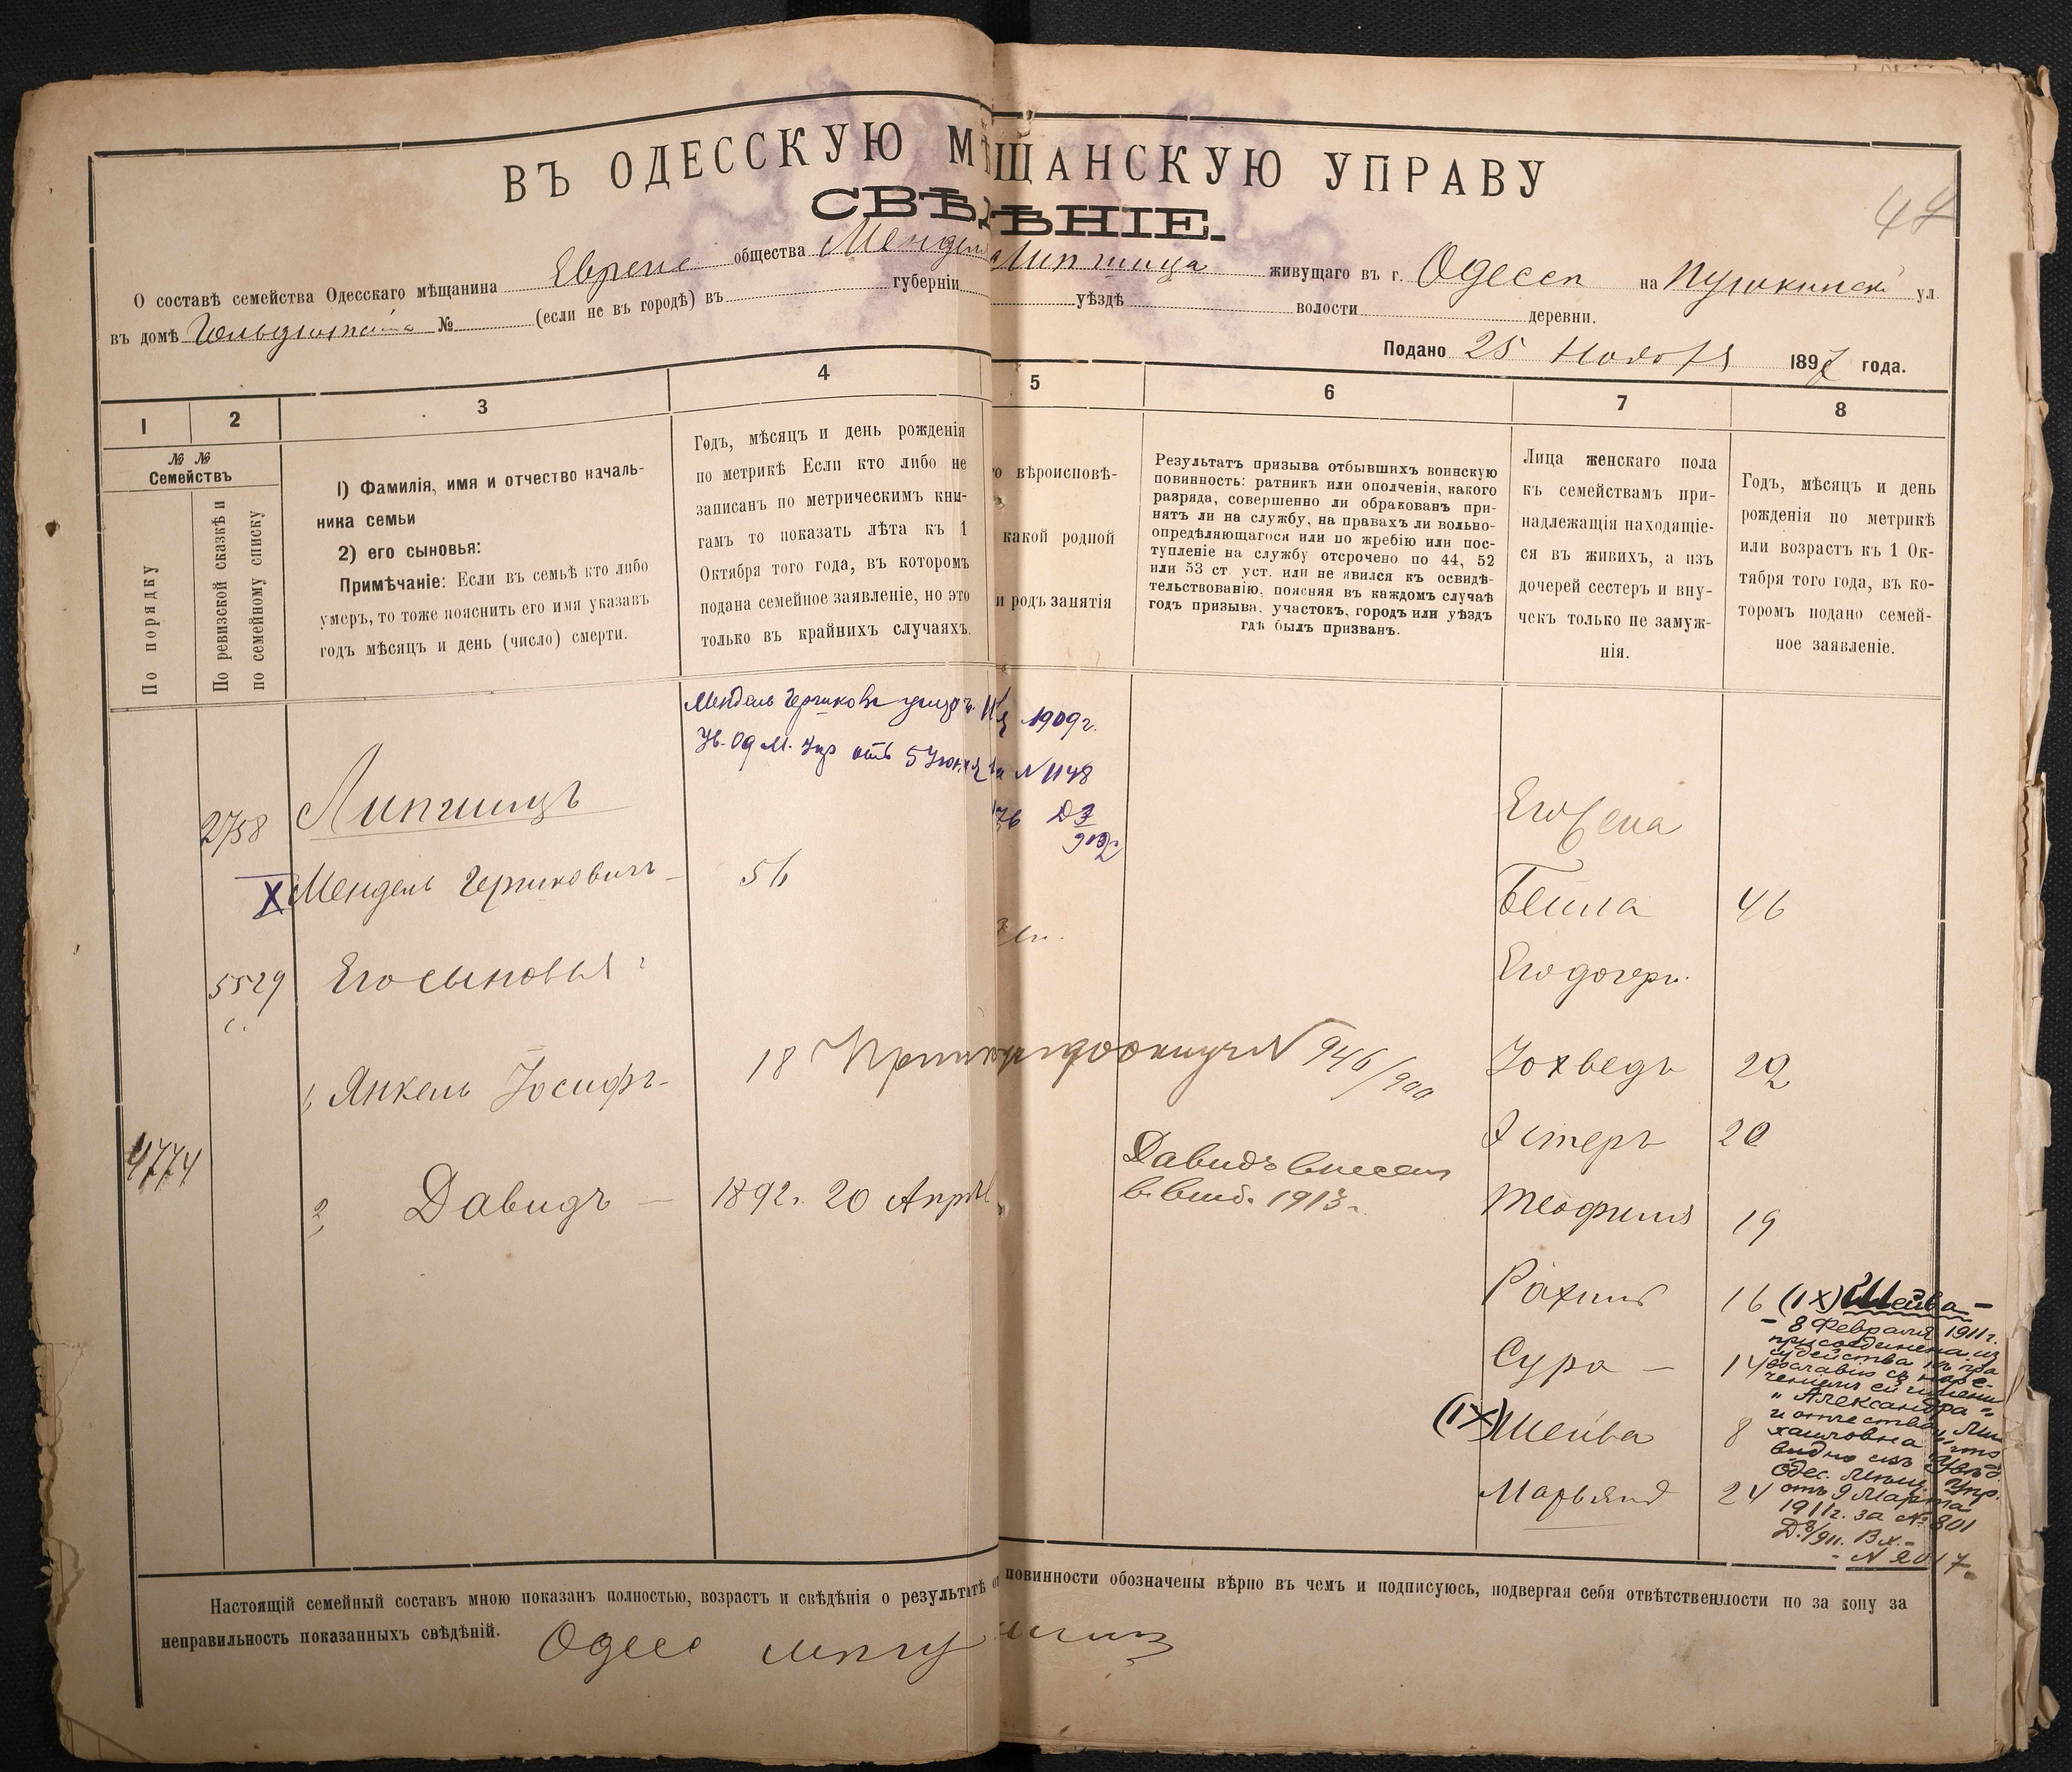 ВЪ ОДЕССКУЮ МѢЩАНСКУЮ УПРАВУ
СВѢДѢНІЕ.
О составѣ семейства Одесскаго мѣщанина Еврейс общества Менделя Липшица живущаго въ г. Одессѣ на Пушкинск ул.
въ домѣ Гольдштейна № (если не въ городѣ) въ губерніи уѣздѣ волости деревни.
Подано 25 Ноября 1897 года.
1
2
3
4
5
6
7
8
№ №
Семействъ
По порядку
По ревизской сказкѣ и
по семейному списку
1) Фамилія, имя и отчество началь-
ника семьи
2) его сыновья:
Примѣчаніе: Если въ семьѣ кто либо
умеръ, то тоже пояснить его имя указавъ
годъ мѣсяцъ и день (число) смерти.
Годъ, мѣсяцъ и день рожденія
по метрикѣ Если кто либо не
записанъ по метрическимъ кни-
гамъ то показать лѣта къ 1
Октября того года, въ которомъ
подана семейное заявленіе, но это
только въ крайнихъ случаяхъ.
о вѣроисповѣ-
какой родной
и родъ занятія
Результатъ призыва отбывшихъ воинскую
повинность: ратникъ или ополченія, какого
разряда, совершенно ли обракованъ при-
нятъ ли на службу, на правахъ ли вольно-
опредѣляющагося или по жребію или пос-
тупленіе на службу отсрочено по 44, 52
или 53 ст уст. или не явился къ освидѣ-
тельствованію, поясняя въ каждомъ случаѣ
годъ призыва, участокъ, городъ или уѣздъ
гдѣ былъ призванъ.
Лица женскаго пола
къ семействамъ при-
надлежащія находящіе-
ся въ живихъ, а изъ
дочерей сестеръ и вну-
чекъ только не замуж-
нія.
Годъ, мѣсяцъ и день
рожденія по метрикѣ
или возрастъ къ 1 Ок-
тября того года, въ ко-
торомъ подано семей-
ное заявленіе.
Мендель Гершковъ умеръ 1909г.
Ув. Од М. Упр отъ 5 Іюня за N 1148
2758 Липшицъ
Его жена
X Мендель Гершковичъ 56
Бейла 46
5529 Его сыновья:
Его дочери:
1, Янкель Іосифъ 18 N 946/900
Іохведъ 22
Эстеръ 20
4774
2, Давидъ — 1892г. 20 Апрѣл
Давидъ внесен
в. 1913г.
Теофиля 19
Рахиль 16
Сура — 14
(IX) Шейва 8
Марьямъ 24
(IX) Шейва —
- 8 Февраля 1911г.
присоединена изъ
іудейства къ пра
вославію съ наре-
ченіемъ ей имени
„Александра"
и отчества „Ми
хайловна" что
видно изъ Увѣд.
Одес. Мѣщ. Упр.
отъ 9 Марта
1911г. за № 801
Д.3/911. Вх.-
- N 2017.
Настоящій семейный составъ мною показанъ полностью, возрастъ и свѣдѣнія о результатѣ о повинности обозначены вѣрно въ чемъ и подписуюсь, подвергая себя отвѣтственности по за кону за
неправильность показанныхъ свѣдѣній.
Одес